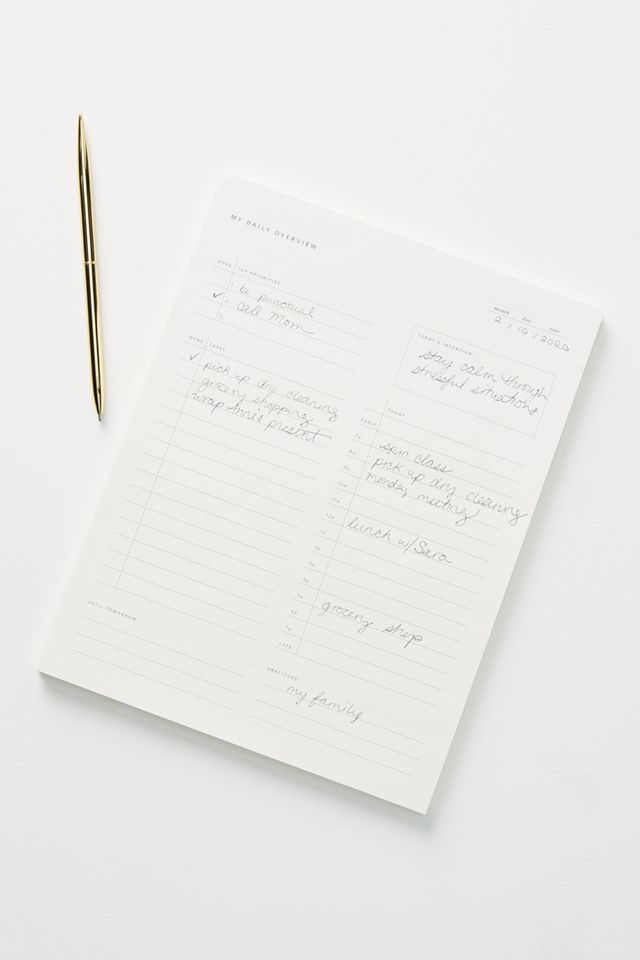 MY DAILY OVERVIEW
month day year
2 / 10 / 2020
DONE TOP PRIORITIES
1. be punctual
✓ 2. call mom
3.
TODAY'S INTENTION:
stay calm through
stressful situations
DONE TASKS
✓ pick up dry cleaning
grocery shopping
wrap Ann's present
TODAY
EARLY
7a spin class
8a pick up dry cleaning
9a monday meeting
10a
11a
12p lunch w/Sara
1p
2p
3p
4p
5p grocery shop
6p
7p
LATE
UNTIL TOMORROW:
GRATITUDE:
my family